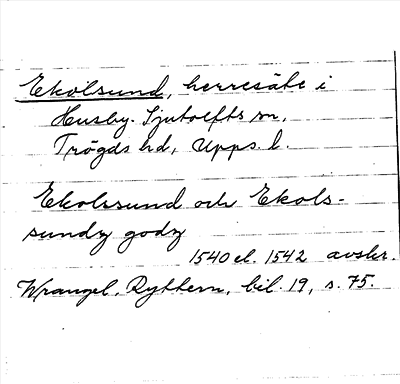 Ekolsund, herresäte i
Husby-Sjutolfts sn,
Trögds hd, Upps. l.
Ekolssund och Ekols-
sundz godz
1540 el. 1542 avskr.
Wrangel, Ryttern, bil. 19, s. 75.